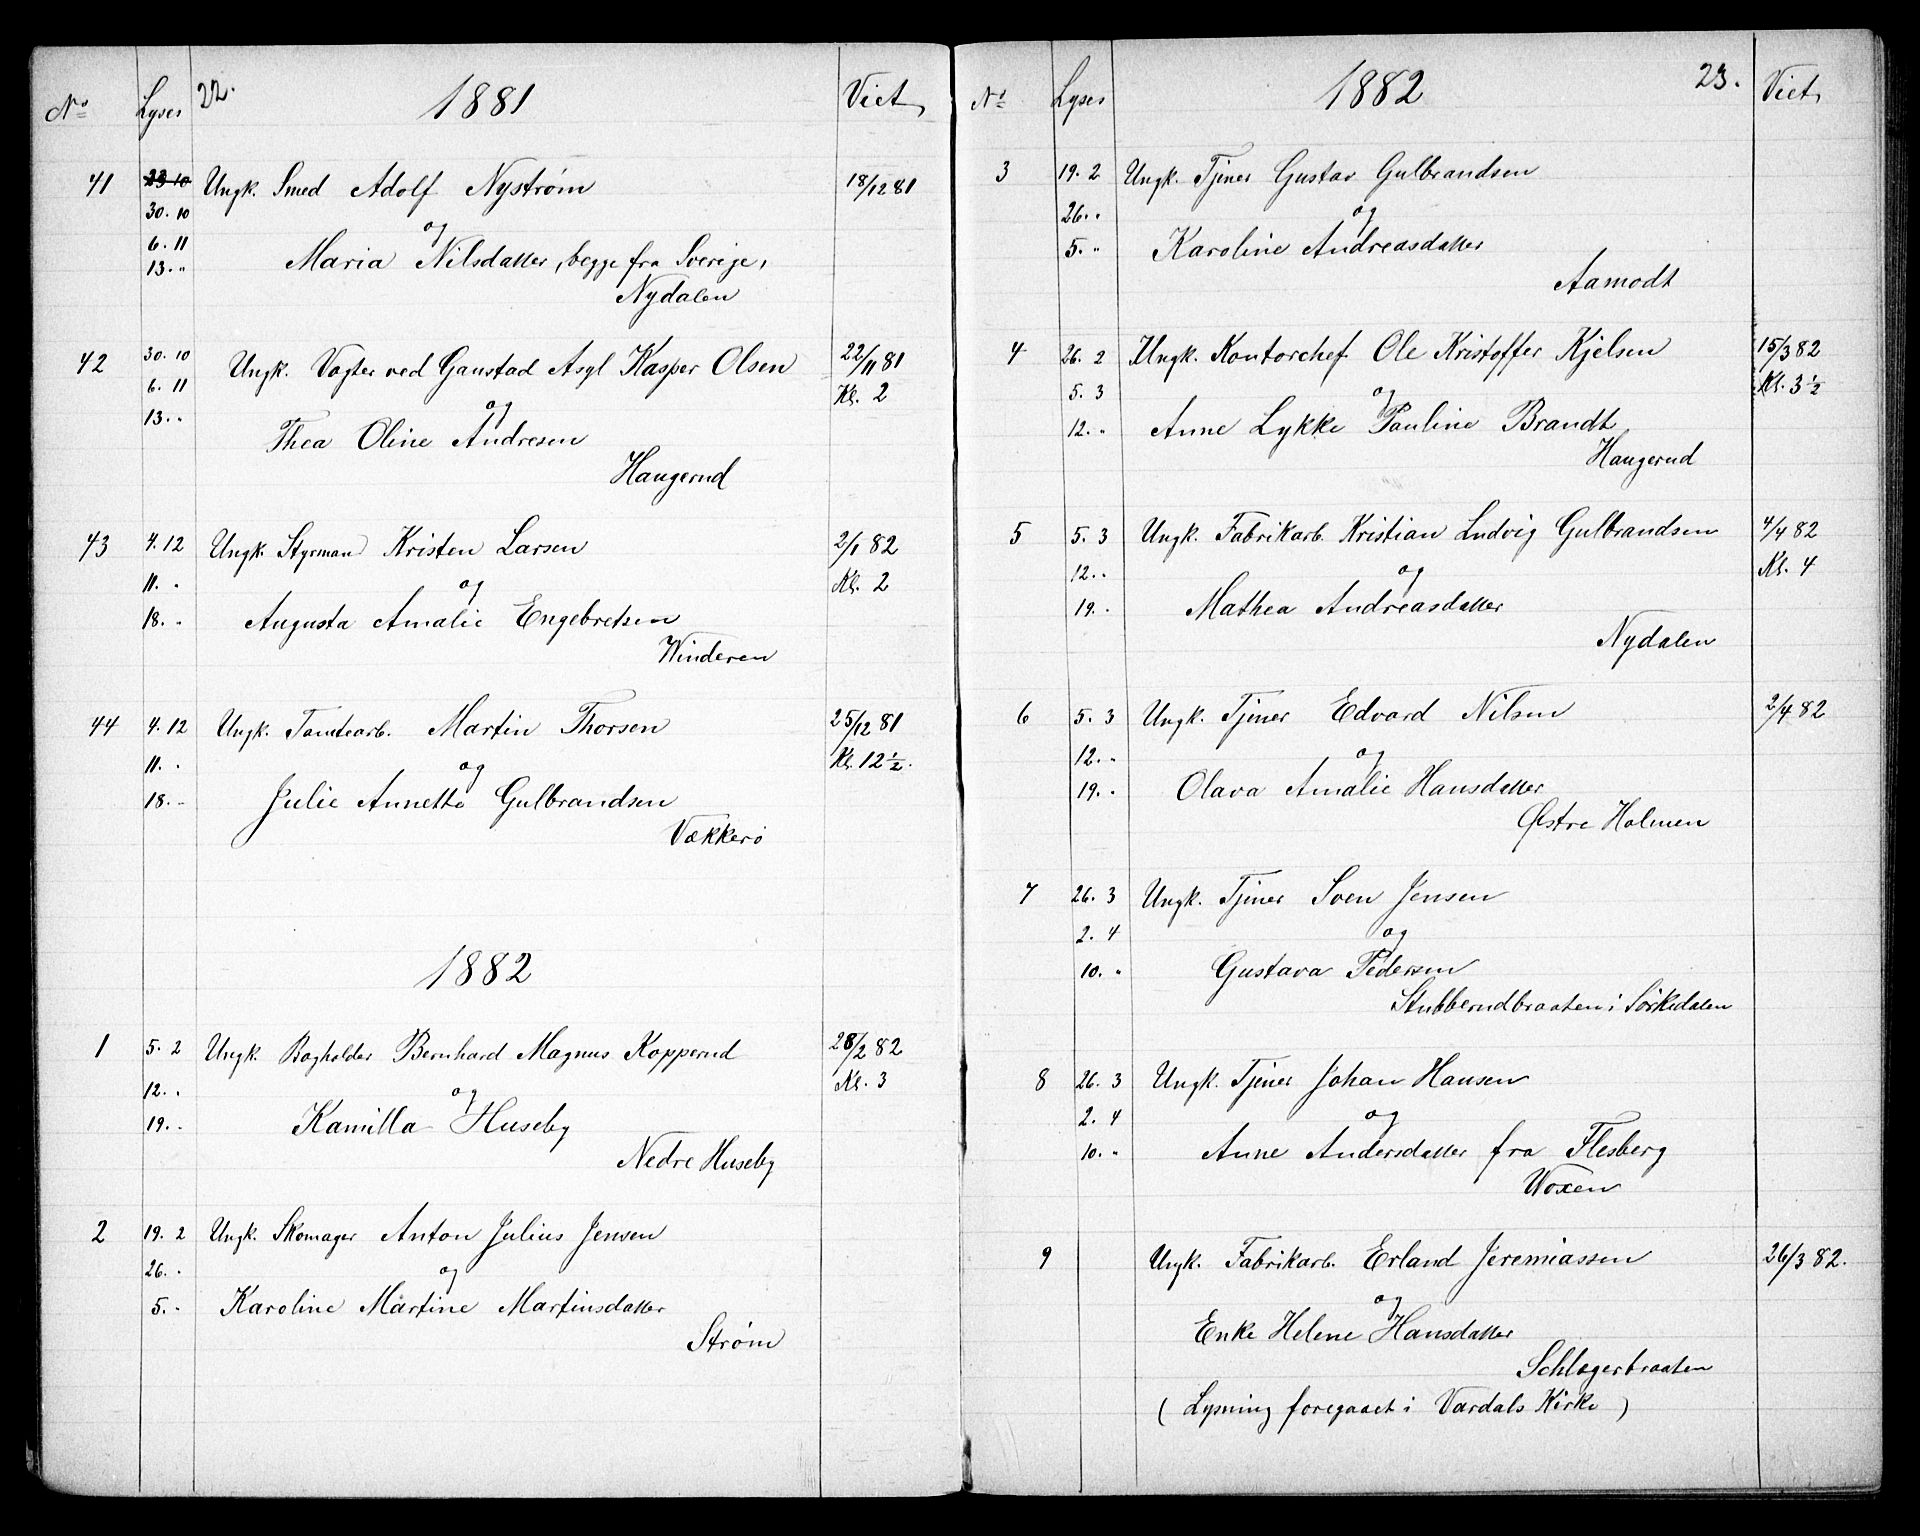 No Lyses 22. 1881 Viet
41 23 10 Ungk. Smed Adolf Nystrøm 18/12 81
30. 10
og
6. 11 Maria Nilsdatter, begge fra Sverige,
13. "
Nydalen
42 30. 10 Ungk. Vogter ved Gaustad Asyl Kasper Olsen 22/11 81
6. 11 Kl. 2
og
13. " Thea Oline Andresen
Haugerud
43 4. 12 Ungk. Styrmand Kristen Larsen 2/1 82
11. " og Kl. 2
18. " Augusta Amalie Engebretsen
Winderen
44 4. 12 Ungk. Tomtearb. Martin Thorsen 25/12 81
11. " og Kl. 12 1/2.
18. " Julie Annette Gulbrandsen
Vækkerø
1882
1 5. 2 Ungk. Bogholder Bernhard Magnus Kopperud 28/2 82
12. " og Kl. 3
19. " Kamilla Huseby
Nedre Huseby
2 19. 2 Ungk. Skomager Anton Julius Jensen
26. " og
5. " Karoline Martine Martinsdatter
Strøm
No Lyses 1882 23. Viet
3 19. 2 Ungk. Tjener Gustav Gulbrandsen
26. " og
5. " Karoline Andreasdatter
Aamodt
4 26. 2 Ungk. Kontorchef Ole Kristoffer Kjelsen 15/3 82
5. 3 og Kl. 3 1/2
12. " Anne Lykke Pauline Brandt
Haugerud
5 5. 3 Ungk. Fabrikarb. Kristian Ludvig Gulbrandsen 4/4 82
12. " og Kl. 4
19. " Mathea Andreasdatter
Nydalen
6 5. 3 Ungk. Tjener Edvard Nilsen 2/4 82
12. " og
19. " Olava Amalie Hansdatter
Østre Holmen
7 26. 3 Ungk. Tjener Sven Jensen
2. 4 og
10. " Gustava Pedersen
Stubberudbraaten i Sørkedalen
8 26. 3 Ungk. Tjener Johan Hansen
2. 4 og
10. " Anne Andersdatter fra Flesberg
Voxen
9 Ungk. Fabrikarb. Erland Jeremiassen 26/3 82.
og
Enke Helene Hansdatter
Schlagerbraaten
( Lysning foregaaet i Vardals Kirke )